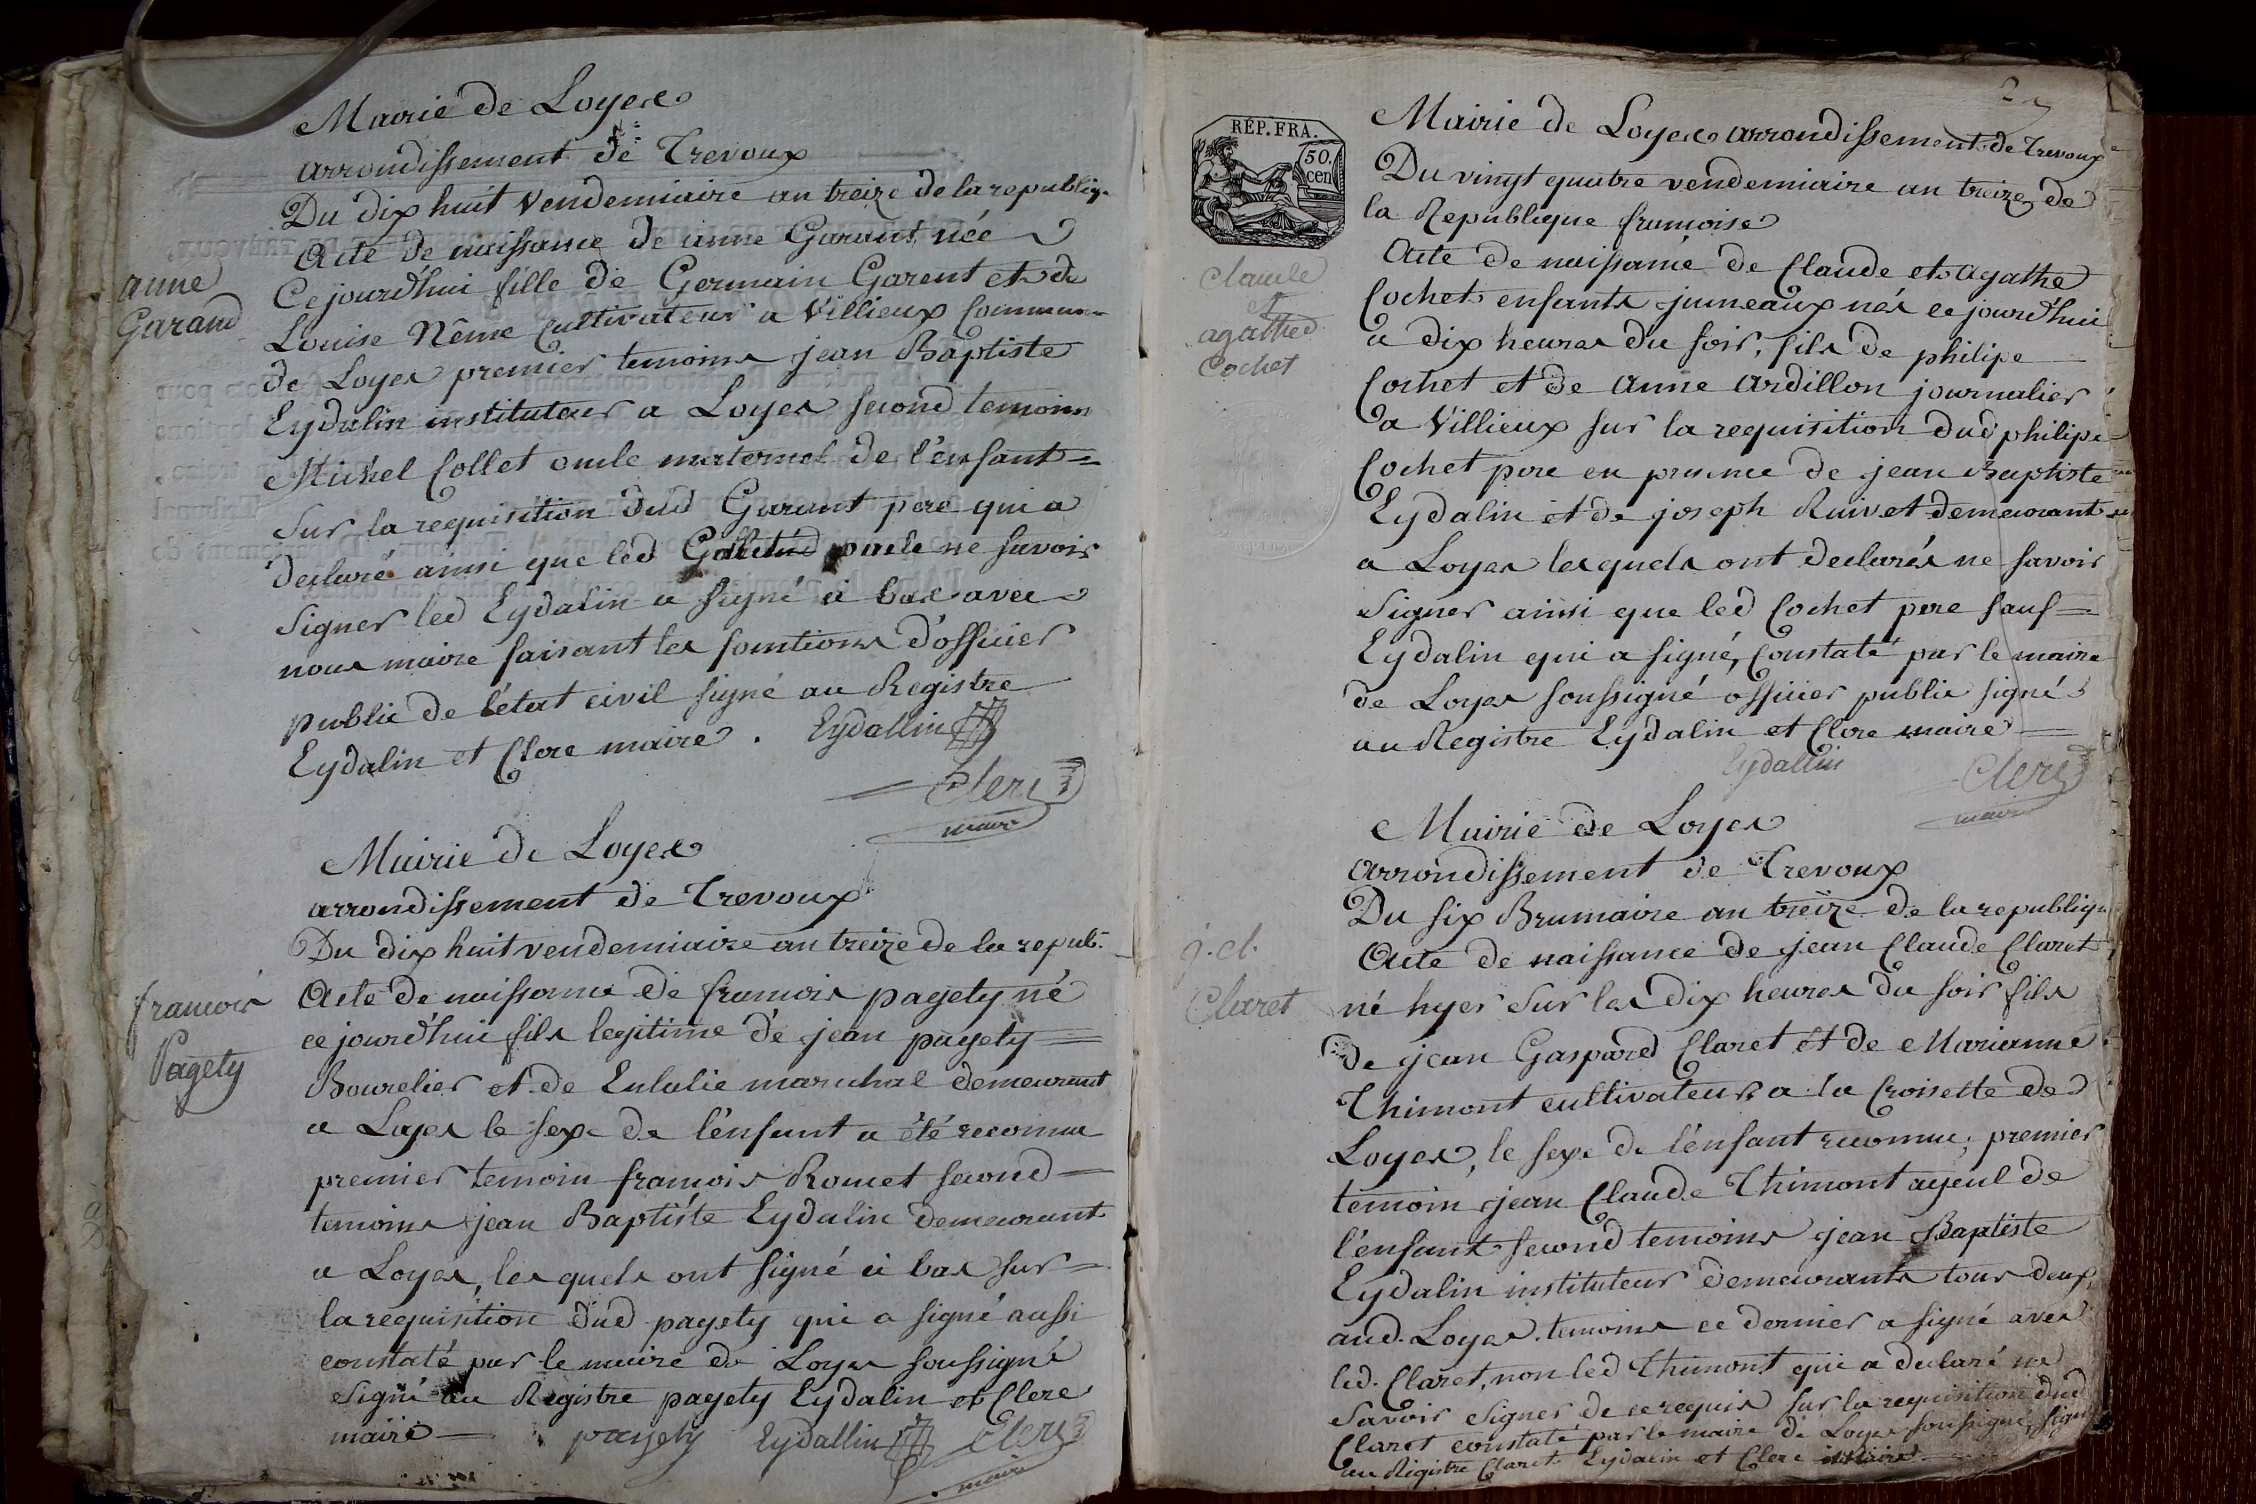 Mairie de Loyes
arrondissement de Trevoux
Du dix huit Vendemiaire an treize de la republiq.
Acte de naissance de anne Garant née
anne
Garand
Ce jourd'hui fille de Germain Garent et de
Louise Nême Cultivateur a Villieux Commune
de Loyes premier temoins jean Baptiste
Eydalin instituteur a Loyes second temoins
Michel Collet oncle maternel de l'enfant =
Sur la requisition dud Garant pere qui a
declaré ainsi que led ne savoir
Signer led Eydalin a signé ci bas avec
nous maire faisant les fonctions d'officier
public de l'etat civil signé au Registre
Eydalin et Clere maire. Eydallin
Clere
maire
Mairie de Loyes
arrondissement de Trevoux
Du dix huit vendemiaire an treize de la repub.
francois
Pagety
Acte de naissance de francois pagety né
ce jourd'hui fils legitime de jean pagety =
Bourelier et de Eulalie marechal demeurant
a Loyes le sexe de l'enfant a été reconnu
premier temoin francois Romet second =
temoins jean Baptiste Eydalin demeurant
a Loyes, lesquels ont signé ci bas sur =
la requisition dud pagety qui a signé aussi
constaté par le maire de Loyes soussigné
signé au Registre pagety Eydalin et Clere
maire pagety Eydallin Clere
maire
RÉP. FRA.
50.
cen
Mairie de Loyes arrondissement de Trevoux
Du vingt quatre vendemiaire an treize de
la Republique francoise
Claude
et
agathe
Cochet
Acte de naissance de Claude et agathe
Cochet enfants jumeaux nés ce jourd'hui
a dix heures du soir, fils de philipe
Cochet et de anne ardillon journalier
a Villieux sur la requisition dud philipe
Cochet pere en presence de jean Baptiste
Eydalin et de joseph Ruivet demeurant
a Loyes lesquels ont declarés ne savoir
Signer ainsi que led Cochet pere sauf =
Eydalin qui a signé, Constaté par le maire
de Loyes soussigné officier public signé
au Registre Eydalin et Clere maire
Eydallin Clere
maire
Mairie de Loyes
arrondissement de Trevoux
Du six Brumaire an treize de la republiq
j. cl.
Claret
Acte de naissance de jean Claude Claret
né hyer sur les dix heures du soir fils
de jean Gaspard Claret et de Marianne
Thimont cultivateurs a la Croisette de
Loyes, le sexe de l'enfant reconnu, premier
temoin jean Claude Thimont ayeul de
l'enfant second temoins jean Baptiste
Eydalin instituteur demeurants tous deux
aud. Loyes. temoins ce dernier a signé avec
led. Claret, non led Thimont qui a declaré ne
Savoir Signer de ce requis sur la requisition dud
Claret constaté par le maire de Loyes soussigné signé
au Registre Claret Eydalin et Clere maire